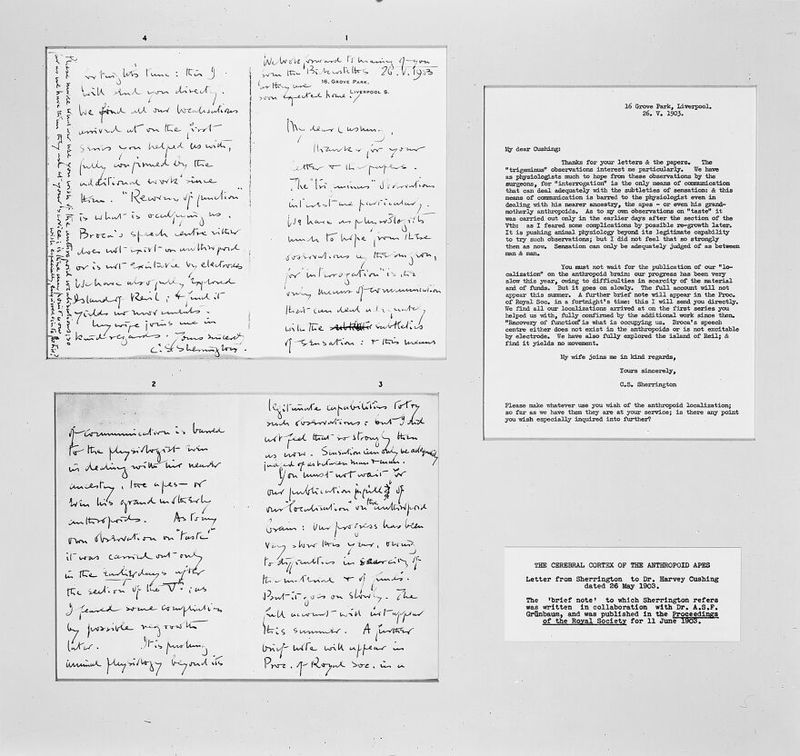 1
We look forward to hearing of you
from the
they are
soon expected home.
26. V. 1903
16, GROVE PARK,
LIVERPOOL S.
My dear Cushing,
Thanks for your
letter & the papers.
The "trigeminus" observations
interest me particularly.
We have as physiologists
much to hope from these
observations by the surgeon,
for interrogation is the
only means of communication
that can deal adequately
with the subtleties
of sensation: & this means
2
of communication is barred
to the physiologist even
in dealing with his nearer
ancestry, the apes – or
even his grandmotherly
anthropoids. As to my
own observation on "taste"
it was carried out only
in the earlier days after
the section of the Vth: as
I feared some complication
by possible regrowth
later. It is pushing
animal physiology beyond its
3
legitimate capabilities to try
such observations; but I did
not feel that so strongly then
as now. Sensation can only be adequately
judged of as between man & man.
You must not wait for
our publication in full of
our "localisation" on the anthropoid
brain: our progress has been
very slow this year, owing
to difficulties in scarcity of
the material & of funds.
But it goes on slowly. The
full account will not appear
this summer. A further
brief note will appear in
Proc. of Royal Soc. in a
4
fortnight's time: this I
will send you directly.
We find all our localisations
arrived at on the first
series you helped us with,
fully confirmed by the
additional work since
then. "Recovery of function"
is what is occupying us.
Broca's speech centre either
does not exist in anthropoid
or is not excitable by electrode.
We have also fully explored
Island of Reil; & find it
yields no movements.
My wife joins me in
kind regards. Yours sincerely
C. S. Sherrington.
Please make whatever use you wish of the anthropoid localization;
so far as we have them they are at your service; is there any point you
wish especially enquired into further?
16 Grove Park, Liverpool.
26. V. 1903.
My dear Cushing:
Thanks for your letters & the papers. The
"trigeminus" observations interest me particularly. We have
as physiologists much to hope from these observations by the
surgeons, for "interrogation" is the only means of communication
that can deal adequately with the subtleties of sensation: & this
means of communication is barred to the physiologist even in
dealing with his nearer ancestry, the apes - or even his grand-
motherly anthropoids. As to my own observations on "taste" it
was carried out only in the earlier days after the section of the
Vth: as I feared some complications by possible re-growth later.
It is pushing animal physiology beyond its legitimate capability
to try such observations; but I did not feel that so strongly
then as now. Sensation can only be adequately judged of as between
man & man.
You must not wait for the publication of our "lo-
calization" on the anthropoid brain: our progress has been very
slow this year, owing to difficulties in scarcity of the material
and of funds. But it goes on slowly. The full account will not
appear this summer. A further brief note will appear in the Proc.
of Royal Soc. in a fortnight's time: this I will send you directly.
We find all our localizations arrived at on the first series you
helped us with, fully confirmed by the additional work since then.
"Recovery of function" is what is occupying us. Broca's speech
centre either does not exist in the anthropoids or is not excitable
by electrode. We have also fully explored the island of Reil; &
find it yields no movement.
My wife joins me in kind regards,
Yours sincerely,
C.S. Sherrington
Please make whatever use you wish of the anthropoid localization;
so far as we have them they are at your service; is there any point
you wish especially inquired into further?
THE CEREBRAL CORTEX OF THE ANTHROPOID APES
Letter from Sherrington to Dr. Harvey Cushing
dated 26 May 1903.
The 'brief note' to which Sherrington refers
was written in collaboration with Dr. A.S.F.
Grünbaum, and was published in the Proceedings
of the Royal Society for 11 June 1903.